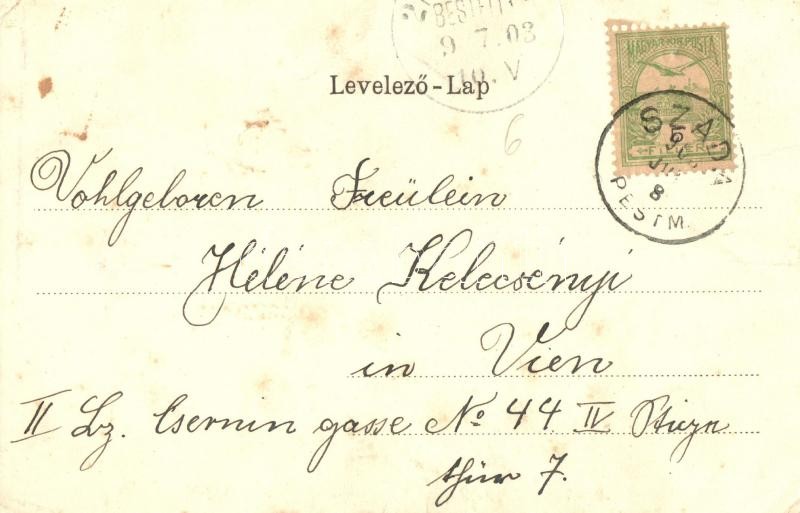 BESTELLT
9 7.03
10.V
Levelező-Lap
MAGYAR KIR. POSTA
5
FILLÉR
SZADA
8
PEST M.
6
Vohlgeboren Freülein
Héléne Kelecsényi
in Vien
II Bz. Csernin gasse No 44 IV Stiege
thür 7.